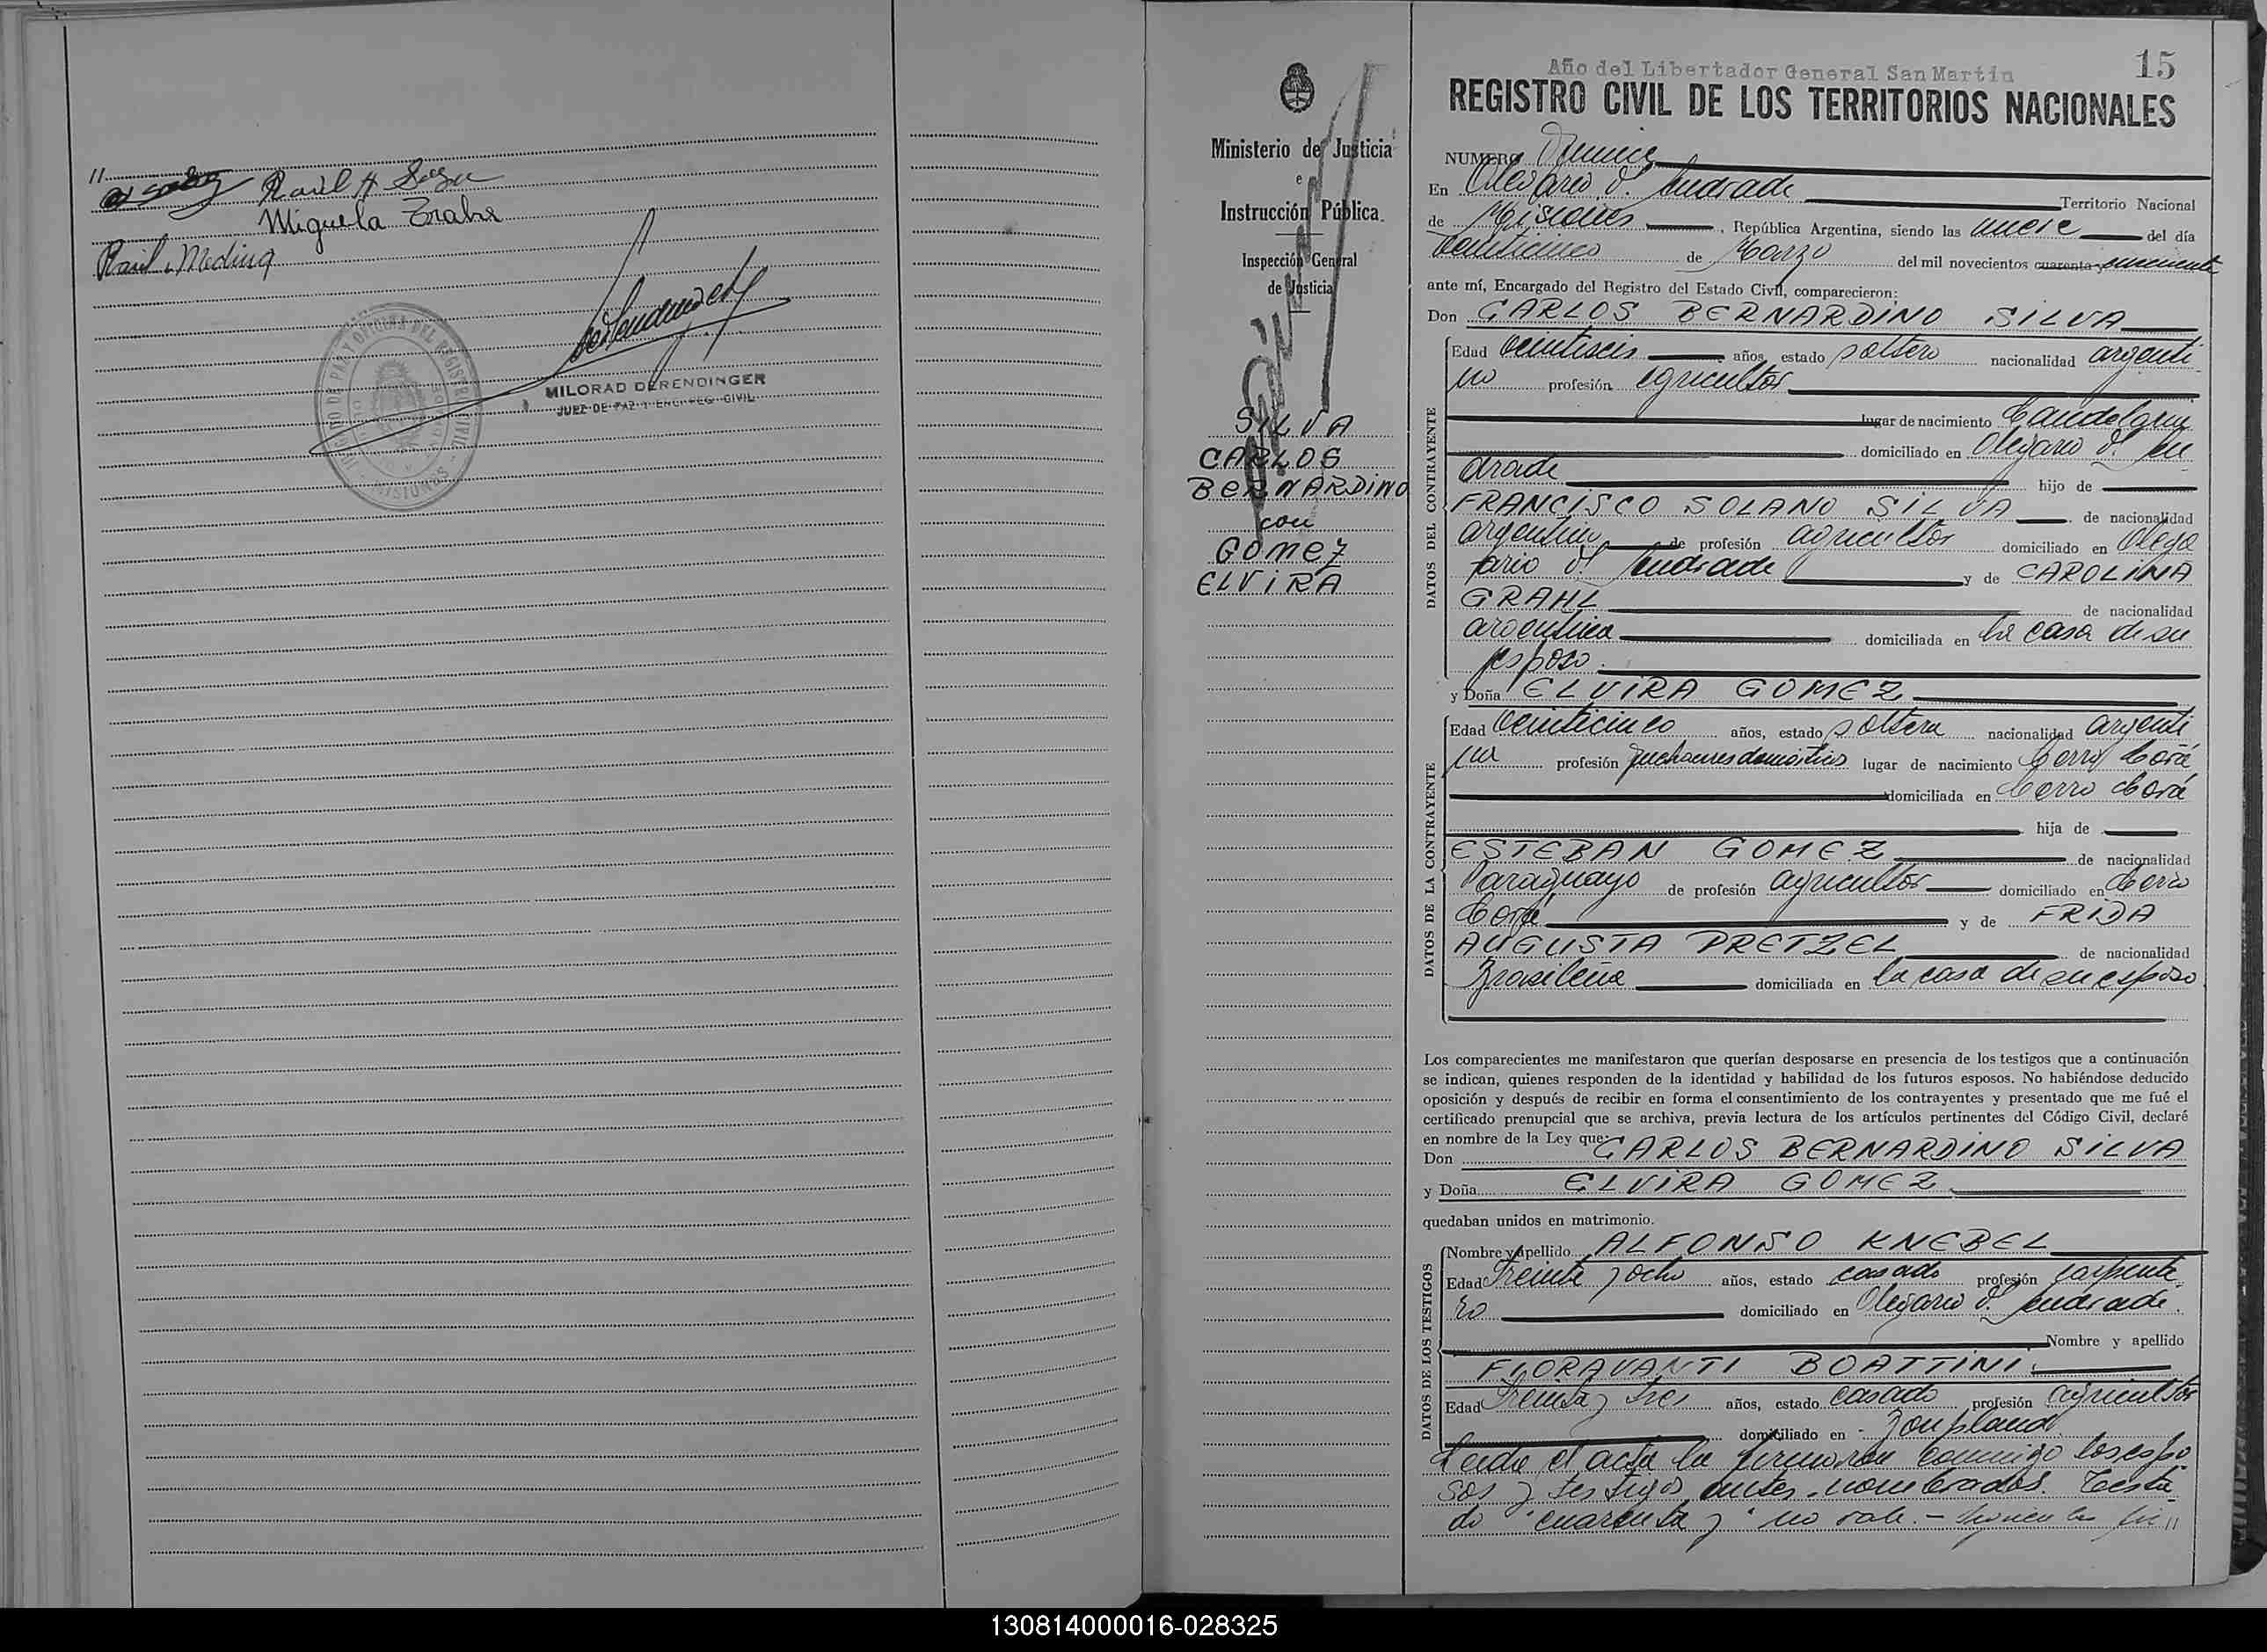 Raúl H Sosa
Miguela Zrala
Raúl Medina
MILORAD DERENDINGER
JUEZ DE PAZ Y ENC. REG. CIVIL
JUZGADO DE PAZ Y OFICINA DEL REGISTRO CIVIL
MISIONES
Ministerio de Justicia
e
Instrucción Pública
Inspección General
de Justicia
SILVA
CARLOS
BERNARDINO
con
GOMEZ
ELVIRA
15
Año del Libertador General San Martín
REGISTRO CIVIL DE LOS TERRITORIOS NACIONALES
NUMERO Quince
En Olegario V. Andrade Territorio Nacional
de Misiones , República Argentina, siendo las nueve del día
veinticinco de Marzo del mil novecientos cuarenta y cincuenta
ante mí, Encargado del Registro del Estado Civil, comparecieron:
Don CARLOS BERNARDINO SILVA
DATOS DEL CONTRAYENTE
Edad veintiseis años, estado soltero nacionalidad argenti
no profesión agricultor
lugar de nacimiento Candelaria
domiciliado en Olegario V. An
drade hijo de
FRANCISCO SOLANO SILVA de nacionalidad
argentino de profesión agricultor domiciliado en Olega
rio V. Andrade y de CAROLINA
GRAHL de nacionalidad
argentina domiciliada en la casa de su
esposo.
y Doña ELVIRA GOMEZ
DATOS DE LA CONTRAYENTE
Edad veinticinco años, estado soltera nacionalidad argenti
na profesión quehaceres domésticos lugar de nacimiento Cerro Corá
domiciliada en Cerro Corá
hija de
ESTEBAN GOMEZ de nacionalidad
Paraguayo de profesión agricultor domiciliado en Cerro
Corá y de FRIDA
AUGUSTA PRETZEL de nacionalidad
Brasileña domiciliada en la casa de su esposo
Los comparecientes me manifestaron que querían desposarse en presencia de los testigos que a continuación
se indican, quienes responden de la identidad y habilidad de los futuros esposos. No habiéndose deducido
oposición y después de recibir en forma el consentimiento de los contrayentes y presentado que me fué el
certificado prenupcial que se archiva, previa lectura de los artículos pertinentes del Código Civil, declaré
en nombre de la Ley que:
Don CARLOS BERNARDINO SILVA
y Doña ELVIRA GOMEZ
quedaban unidos en matrimonio.
DATOS DE LOS TESTIGOS
Nombre y apellido ALFONSO KNEBEL
Edad Treinta y ocho años, estado casado profesión carpinte
ro domiciliado en Olegario V. Andrade.
Nombre y apellido
FIORAVANTI BOATTINI
Edad Treinta y tres años, estado casado profesión agricultor
domiciliado en Bonpland.
Leida el acta la firmaron conmigo los espo
sos y testigos antes nombrados. Testa
do "cuarenta y" no vale.-
130814000016-028325